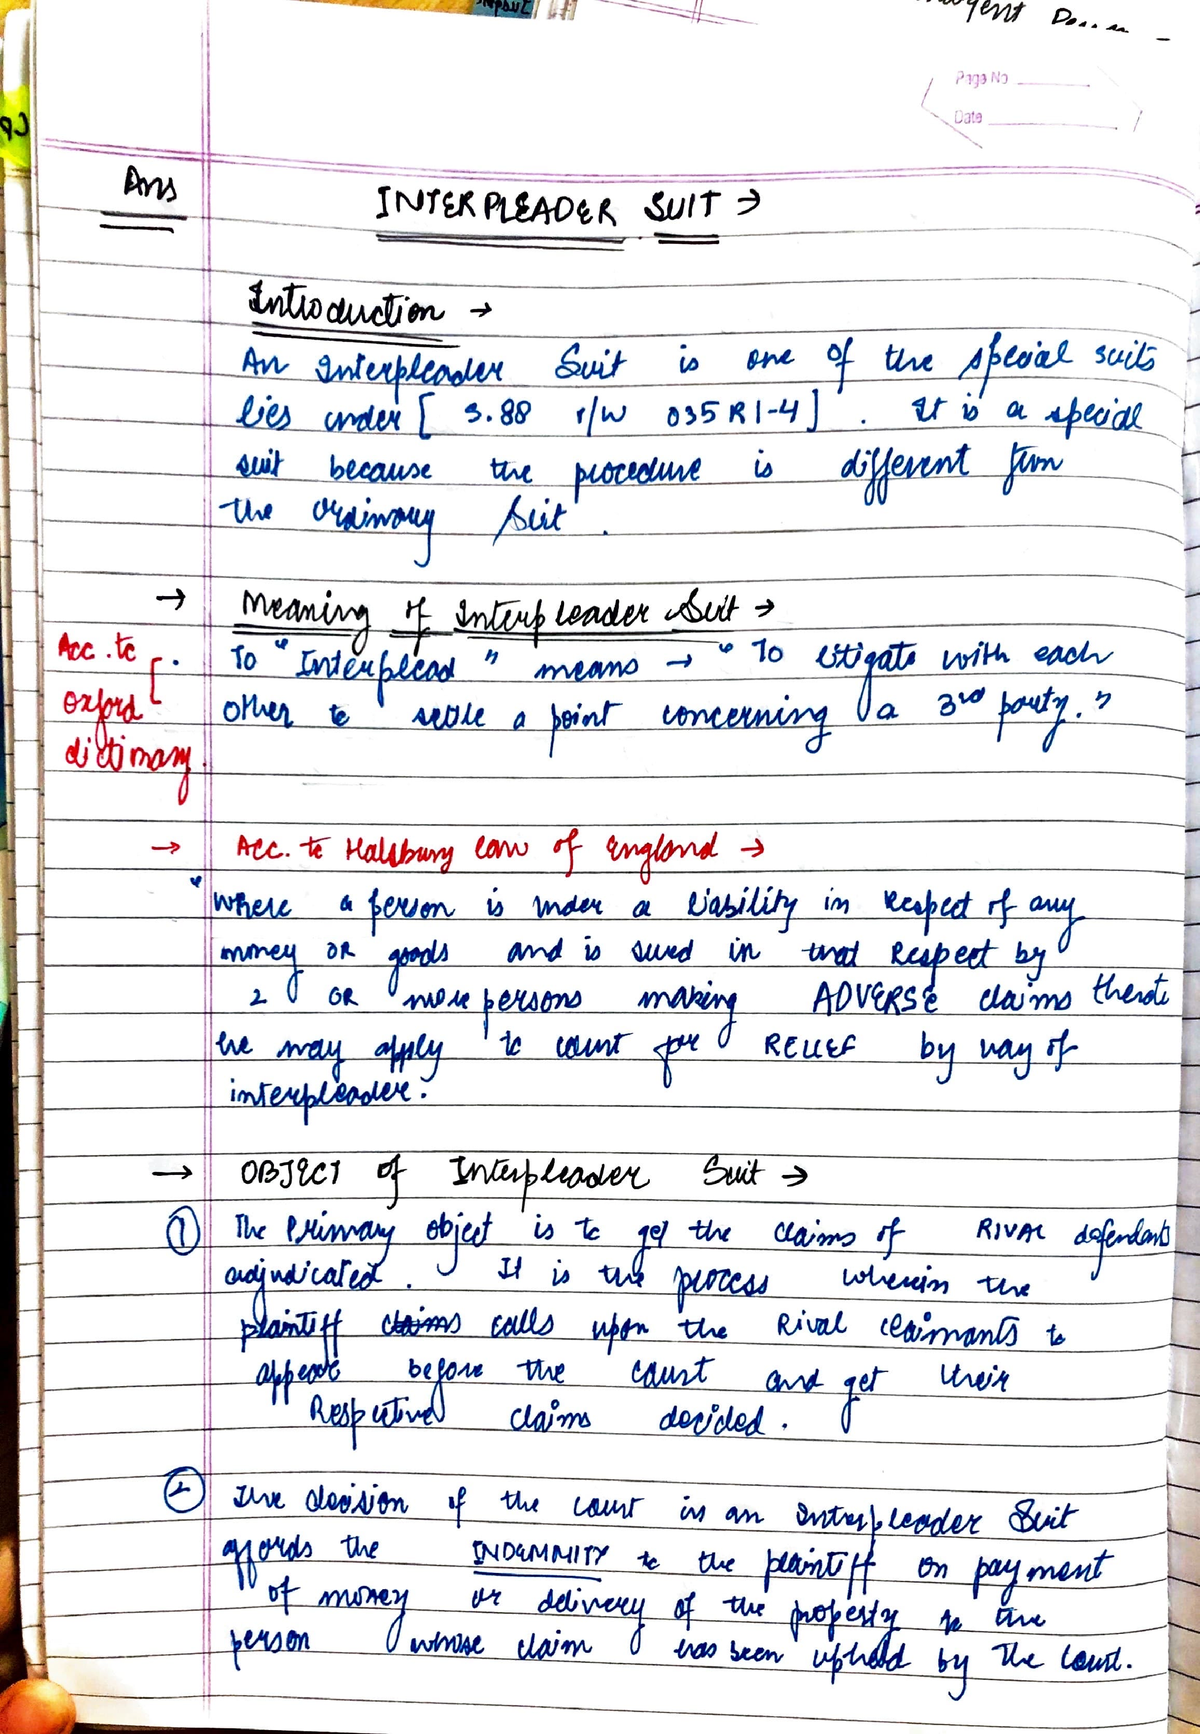 Page No
Date
Ans
INTERPLEADER SUIT →
Introduction →
An Interpleader Suit is one of the special suits
lies under [ S.88 r/w O35 R1-4 ] . It is a special
suit because the procedure is different from
the ordinary Suit .
→ Meaning of Interpleader Suit →
Acc. to
oxford
dictionary.
To "Interplead" means → "To litigate with each
other to settle a point concerning a 3rd party."
→ Acc. to Halsbury law of England →
"where a person is under a liability in respect of any
money OR goods and is sued in that Respect by
2 OR more persons making ADVERSE claims thereto
he may apply to court for RELIEF by way of
interpleader.
→ OBJECT of Interpleader Suit →
① The Primary object is to get the claims of RIVAL defendants
adjudicated . It is the process wherein the
plaintiff claims calls upon the Rival claimants to
appear before the court and get their
Respective claims decided .
② The decision of the court in an Interpleader Suit
affords the INDEMNITY to the plaintiff on payment
of money or delivery of the property to the
person whose claim has been upheld by the Court.